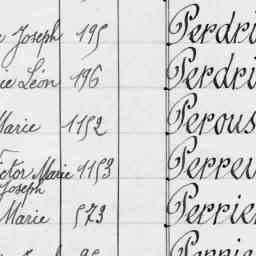 Joseph 195 Perdri
ie Léon 196 Perdri
Marie 1152 Perous
ictor Marie 1153 Perreu
Joseph
Marie 573 Perrier